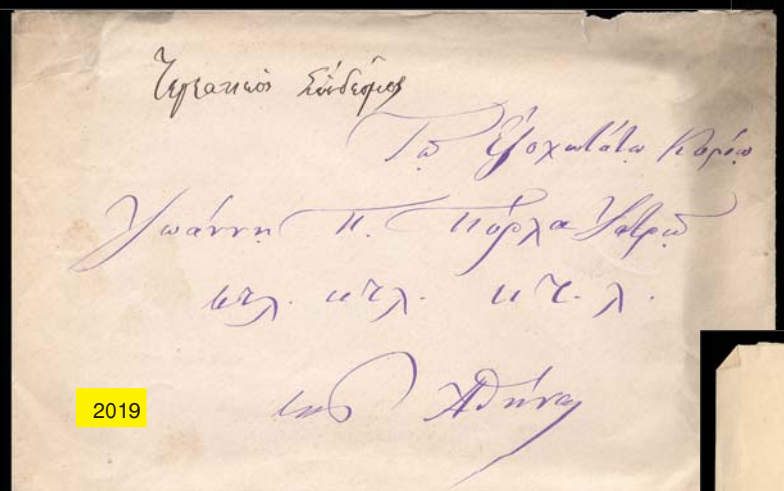 Ἱερατικὸς Σύνδεσμος
Τῷ Ἐξοχωτάτῳ Κυρίῳ
Ἰωάννῃ Π. Πύρλα Ἰατρῷ
κτλ. κτλ. κ.τ.λ.
εἰς Ἀθήνας
2019